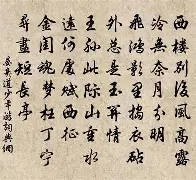 西樓別後風高露
冷無奈月分明
飛鴻影裏搗衣砧
外總是玉關情
王孫此際山重水
遠何處賦西征
金閨魂夢枉丁寧
尋盡短長亭
晏幾道少年游詞典網